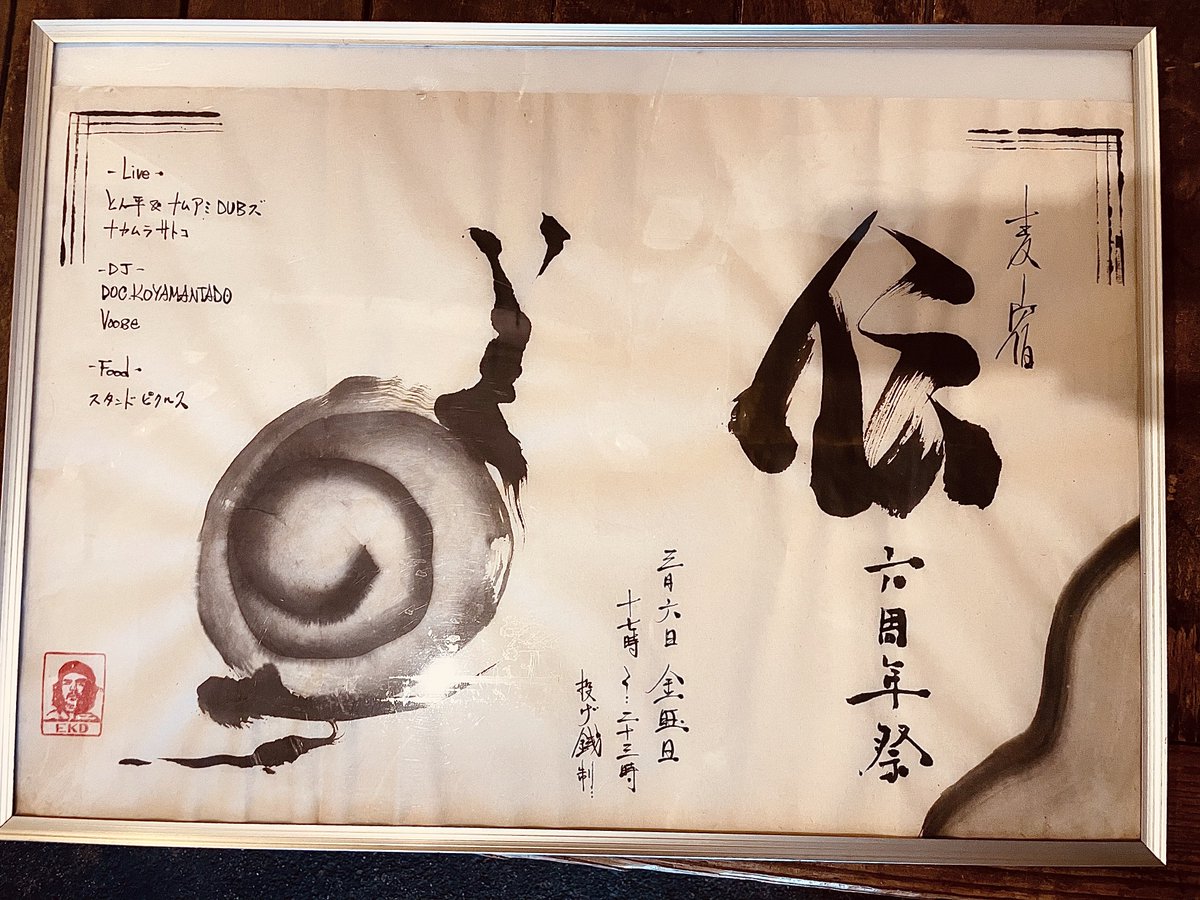 麦宿
伝
六周年祭
三月六日 金曜日
十七時〜二十三時
投げ銭制
- Live -
とん平 & ナムアミDUBズ
ナカムラサトコ
- DJ -
DOC.KOYAMANTADO
Voose
- Food -
スタンドピクルス
EKD